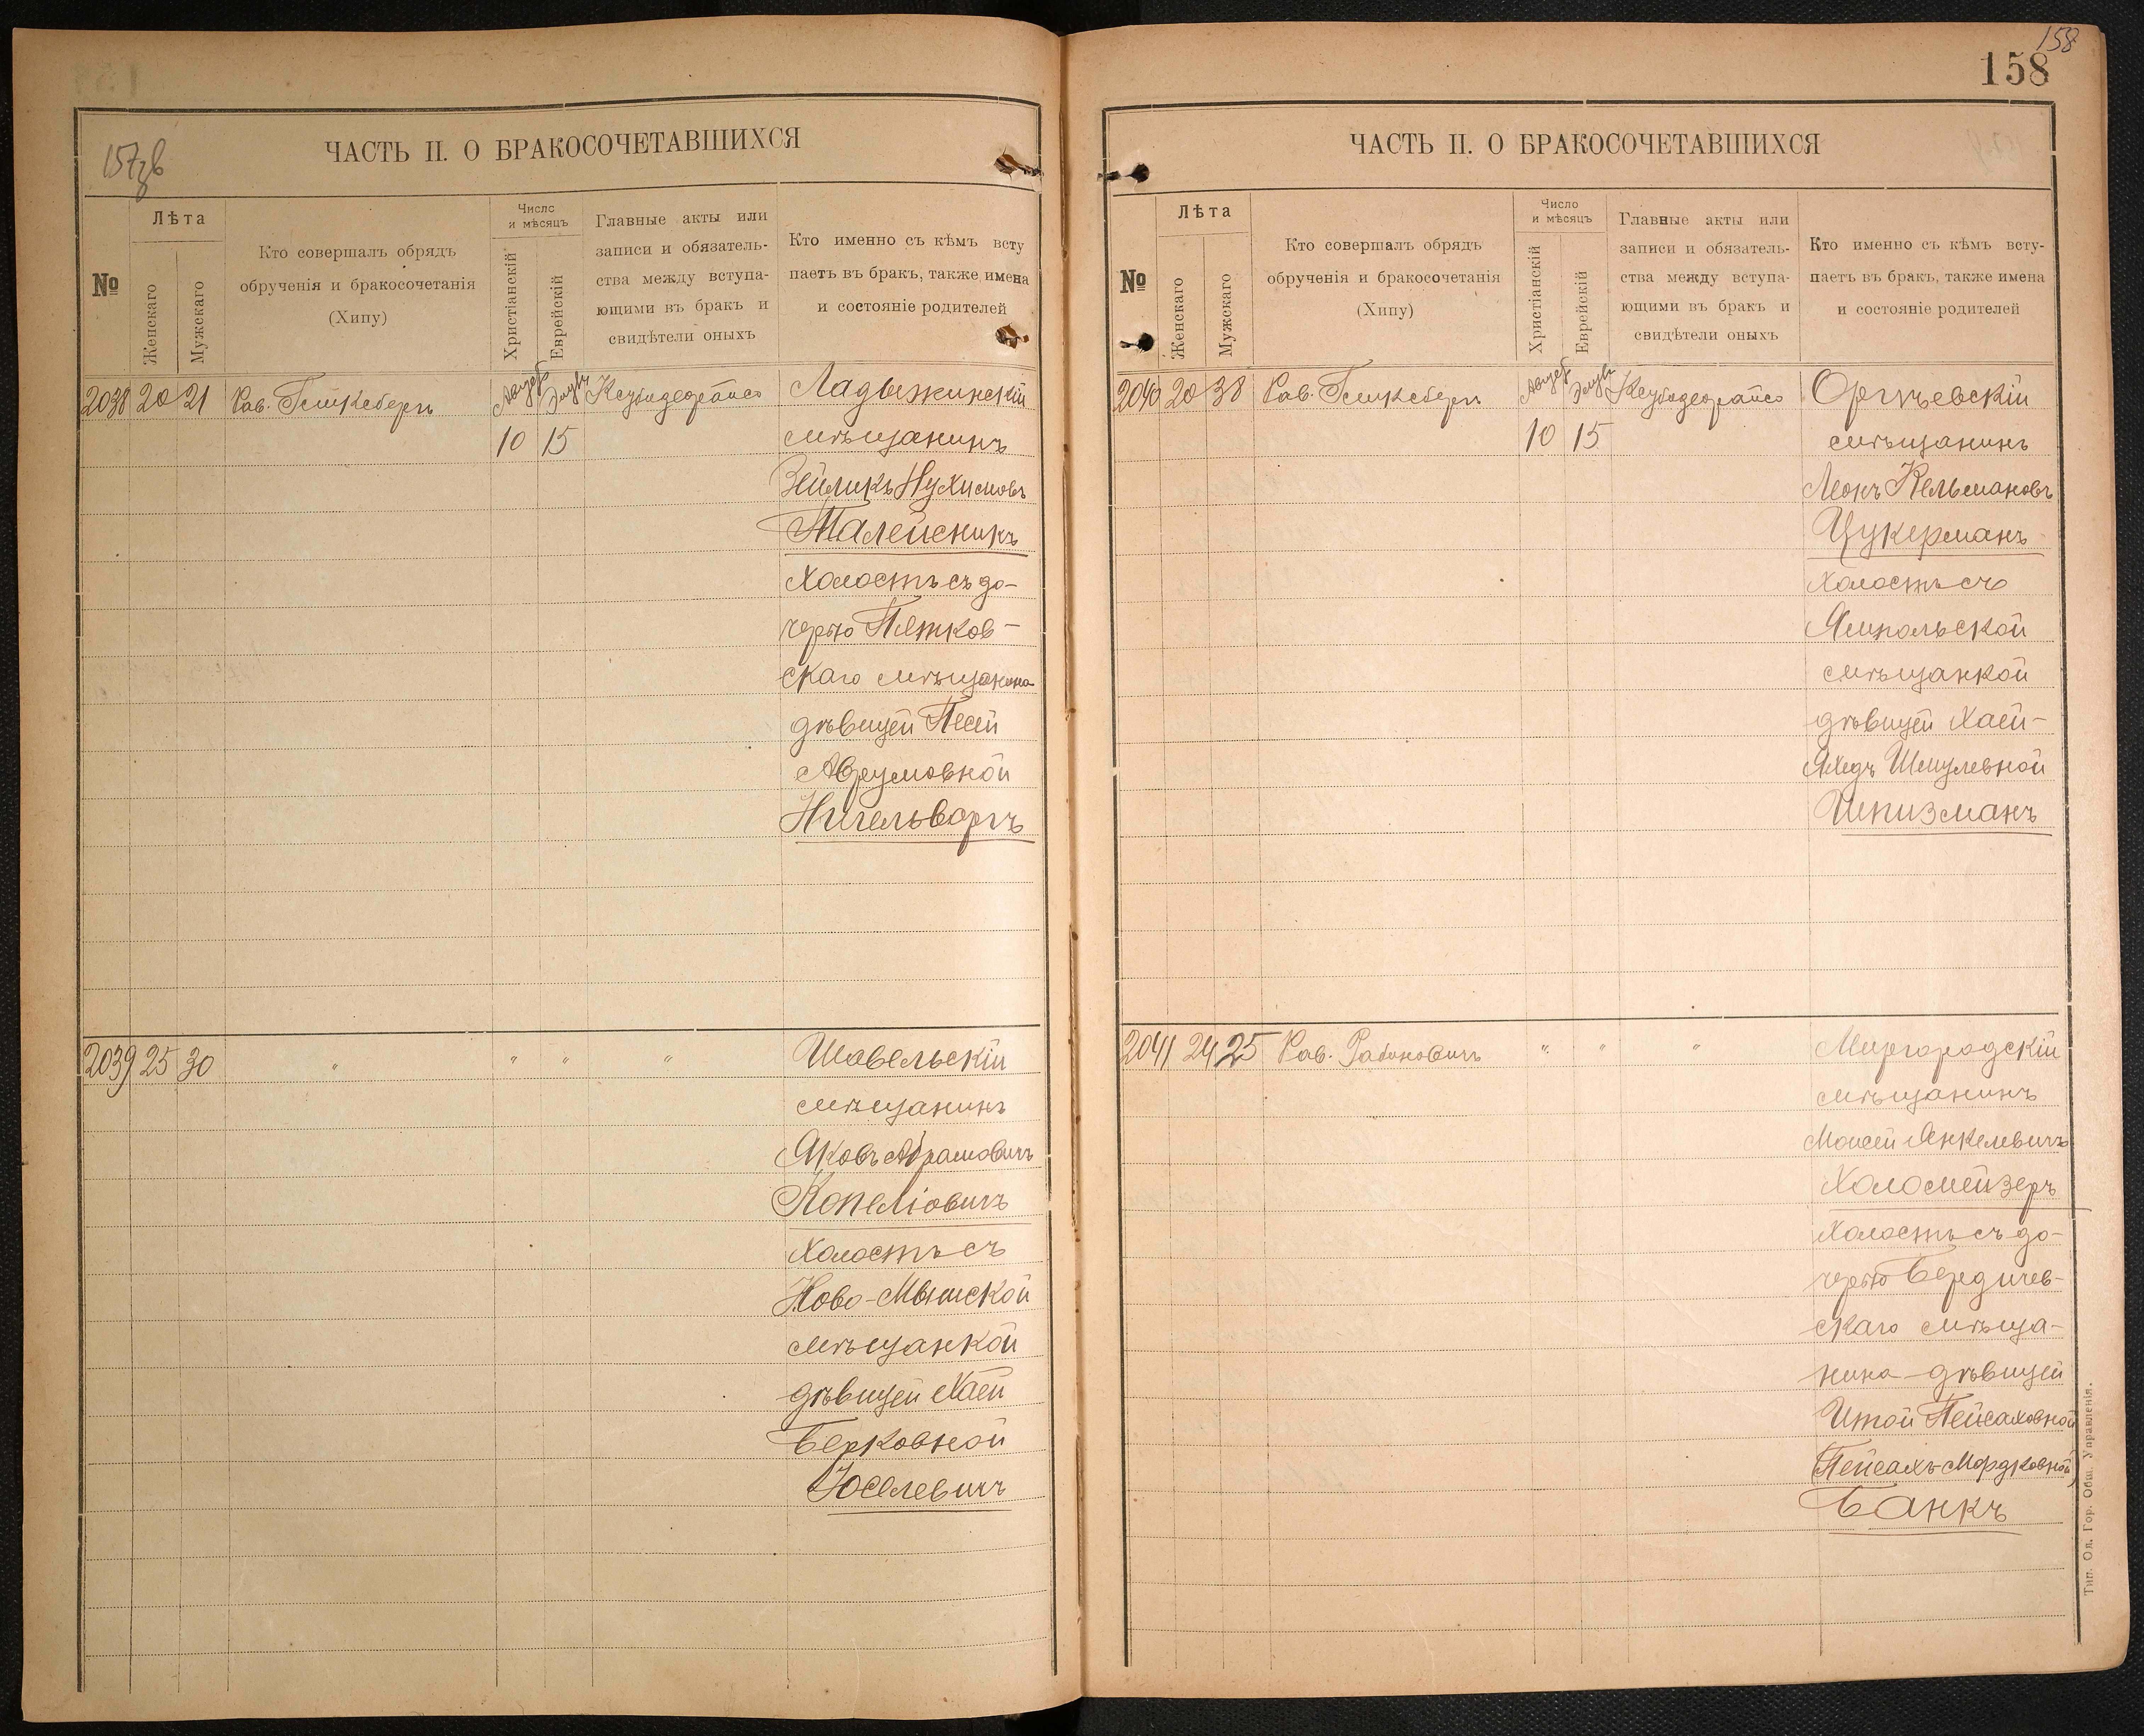 157 зв
ЧАСТЬ II. О БРАКОСОЧЕТАВШИХСЯ
№
Лѣта
Женскаго
Мужскаго
Кто совершалъ обрядъ
обрученія и бракосочетанія
(Хипу)
Число
и мѣсяцъ
Христіанскій
Еврейскій
Главные акты или
записи и обязатель-
ства между вступа-
ющими въ бракъ и
свидѣтели оныхъ
Кто именно съ кѣмъ всту
паетъ въ бракъ, также имена
и состояніе родителей
2038 20 21 Рав. Гешксбергъ
10 15
Ладыжинскій
мѣщанинъ
Зейликъ Нухимовъ
Талейсникъ
Холостъ съ до-
черью Пятков-
скаго мѣщанина
дѣвицей Песей
Аврумовной
Нигельворгъ
2039 25 30 " " " "
Шавельскій
мѣщанинъ
Яковъ Абрамовичъ
Копеліовичъ
Холостъ съ
Ново-Мышской
мѣщанкой
дѣвицей Хаей
Берковной
Юселевичъ
158
158
ЧАСТЬ II. О БРАКОСОЧЕТАВШИХСЯ
№
Лѣта
Женскаго
Мужскаго
Кто совершалъ обрядъ
обрученія и бракосочетанія
(Хипу)
Число
и мѣсяцъ
Христіанскій
Еврейскій
Главные акты или
записи и обязатель-
ства между вступа-
ющими въ бракъ и
свидѣтели оныхъ
Кто именно съ кѣмъ всту-
паетъ въ бракъ, также имена
и состояніе родителей
2040 20 38 Рав. Гешксбергъ
10 15
Оргѣевскій
мѣщанинъ
Леонъ Кельмановъ
Цукерманъ
Холостъ съ
Ямпольской
мѣщанкой
дѣвицей Хаей-
Яхедъ Шмулевной
Шпизманъ
2041 24 25 Рав. Рабиновичъ " " "
Миргородскій
мѣщанинъ
Моисей Янкелевичъ
Холомейзеръ
Холостъ съ до-
черью Бердичев-
скаго мѣща-
нина дѣвицей
Итой Пейсаховной
(Пейсахъ-Мордковной)
Банкъ
Тип. Од. Гор. Общ. Управленія.